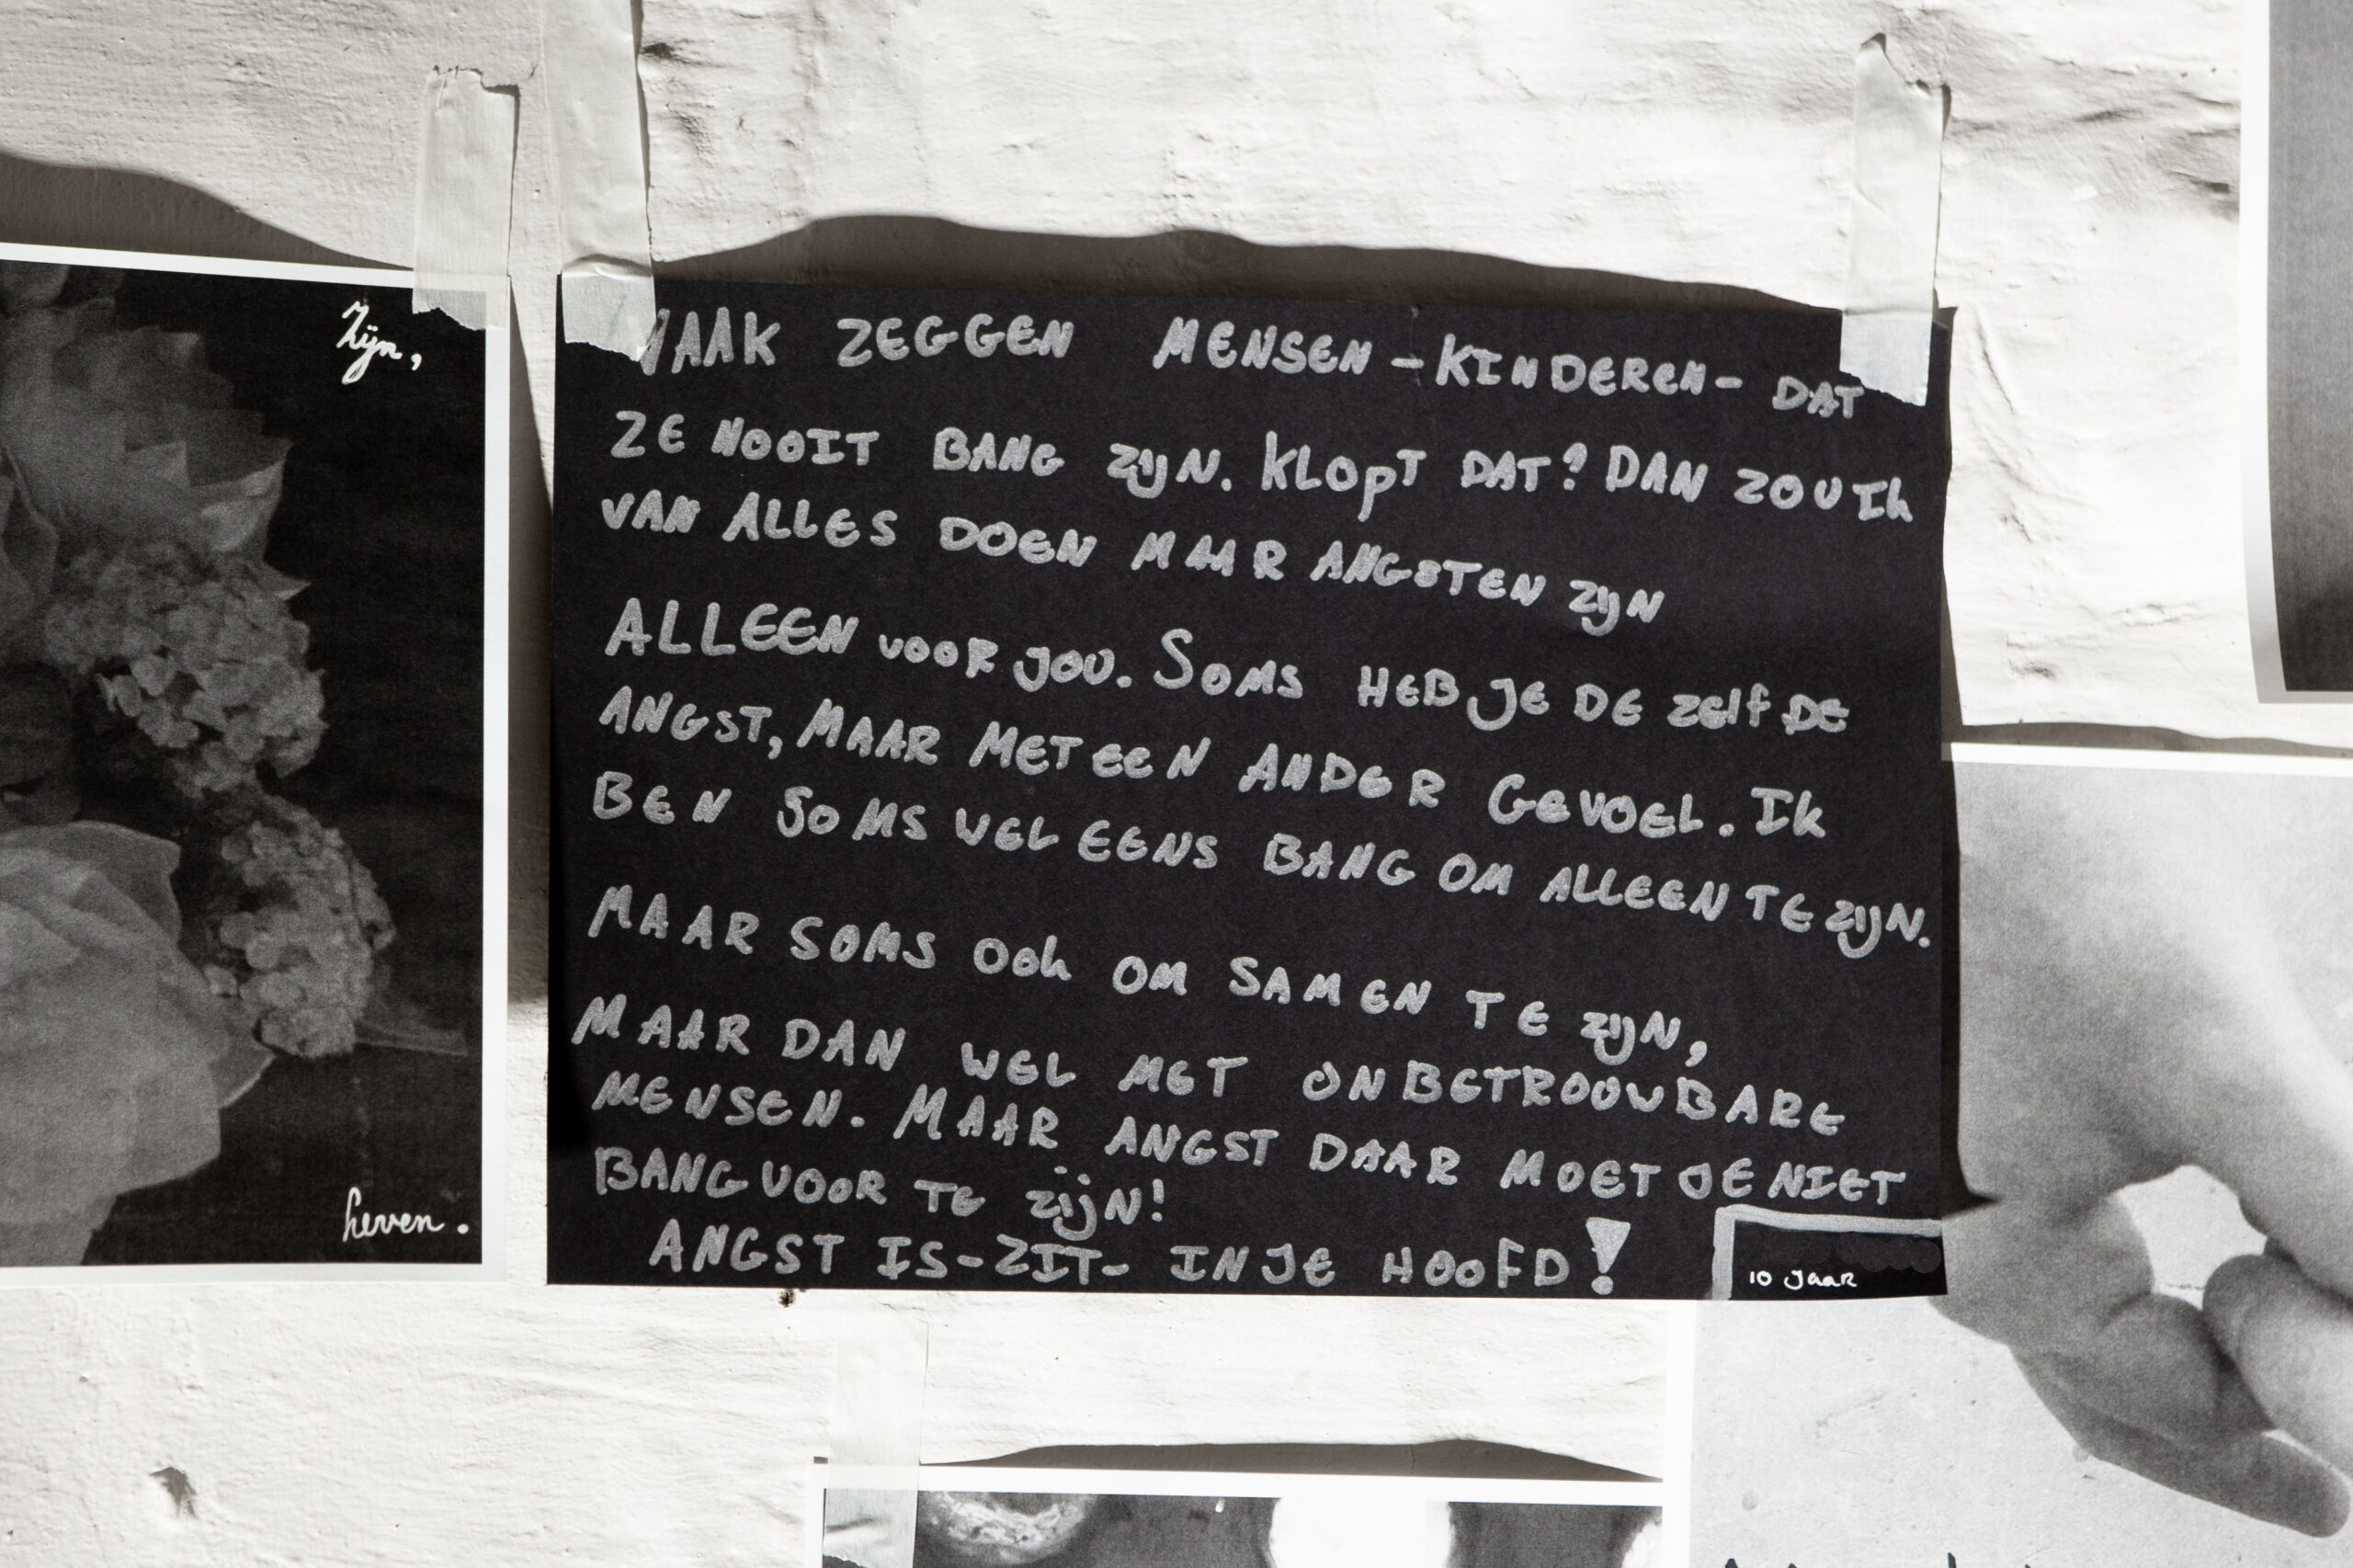 Zijn,
leven.
VAAK ZEGGEN MENSEN -KINDEREN- DAT
ZE NOOIT BANG ZIJN. KLOPT DAT? DAN ZOU Ik
VAN ALLES DOEN MAAR ANGSTEN ZIJN
ALLEEN VOOR JOU. SOMS HEB JE DE ZELFDE
ANGST, MAAR MET EEN ANDER GEVOEL. Ik
BEN SOMS WEL EENS BANG OM ALLEEN TE ZIJN.
MAAR SOMS OOk OM SAMEN TE ZIJN,
MAAR DAN WEL MET ONBETROUWBARE
MENSEN. MAAR ANGST DAAR MOET JE NIET
BANG VOOR TE ZIJN!
ANGST IS-ZIT- IN JE HOOFD!
10 JAAR